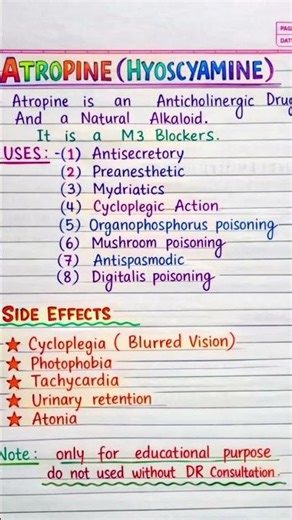 PAG
DATE
ATROPINE (HYOSCYAMINE)
Atropine is an Anticholinergic Drug
And a Natural Alkaloid.
It is a M3 Blockers.
USES:- (1) Antisecretory
(2) Preanesthetic
(3) Mydriatics
(4) Cycloplegic Action
(5) Organophosphorus poisoning
(6) Mushroom poisoning
(7) Antispasmodic
(8) Digitalis poisoning
SIDE EFFECTS
★ Cycloplegia ( Blurred Vision)
★ Photophobia
★ Tachycardia
★ Urinary retention
★ Atonia
Note: only for educational purpose
do not used without DR Consultation.